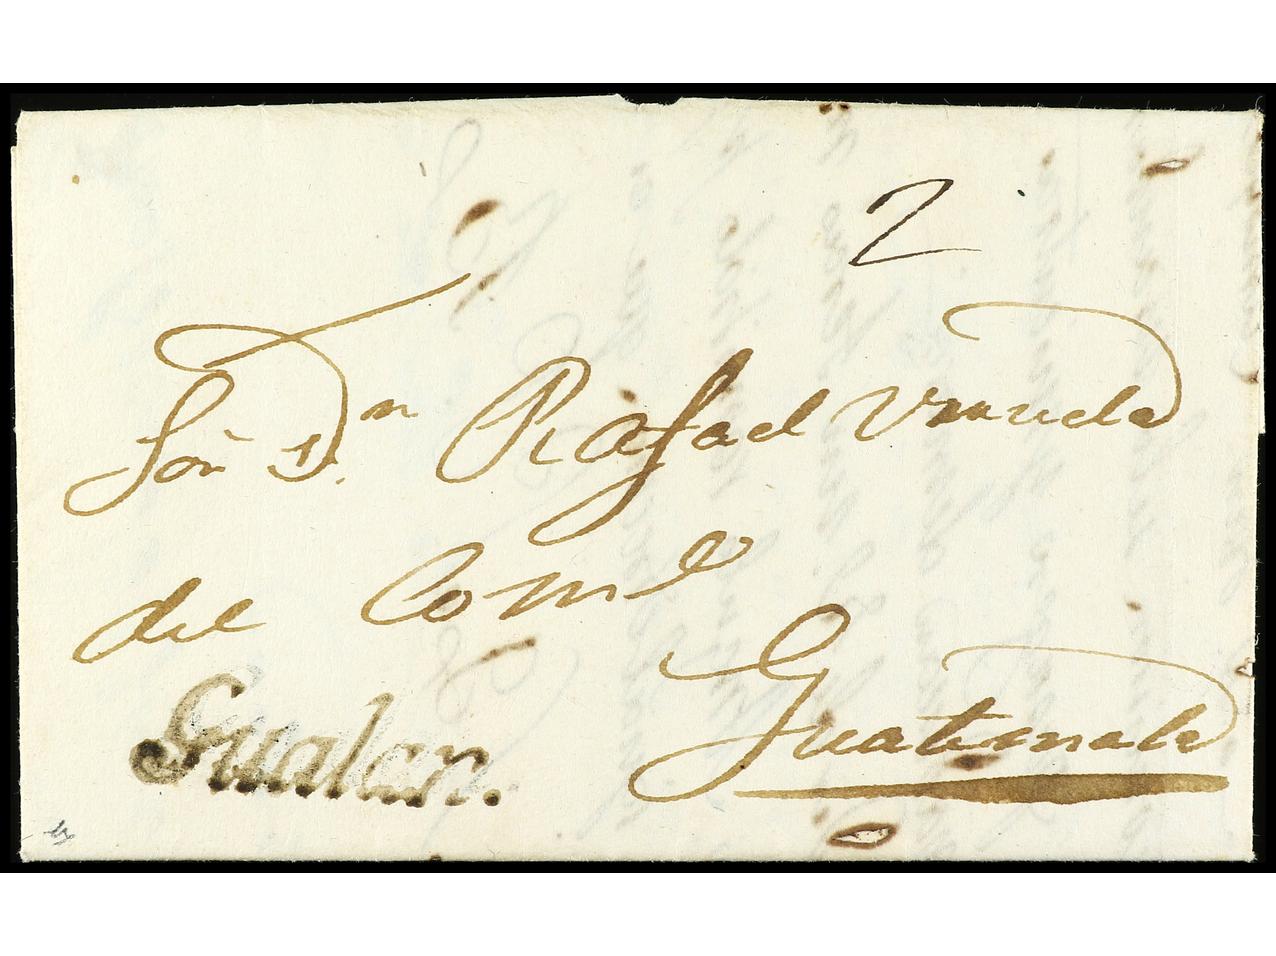 2
Sor. Dn Rafael Urruela
del Como
Guatemala
Gualan.